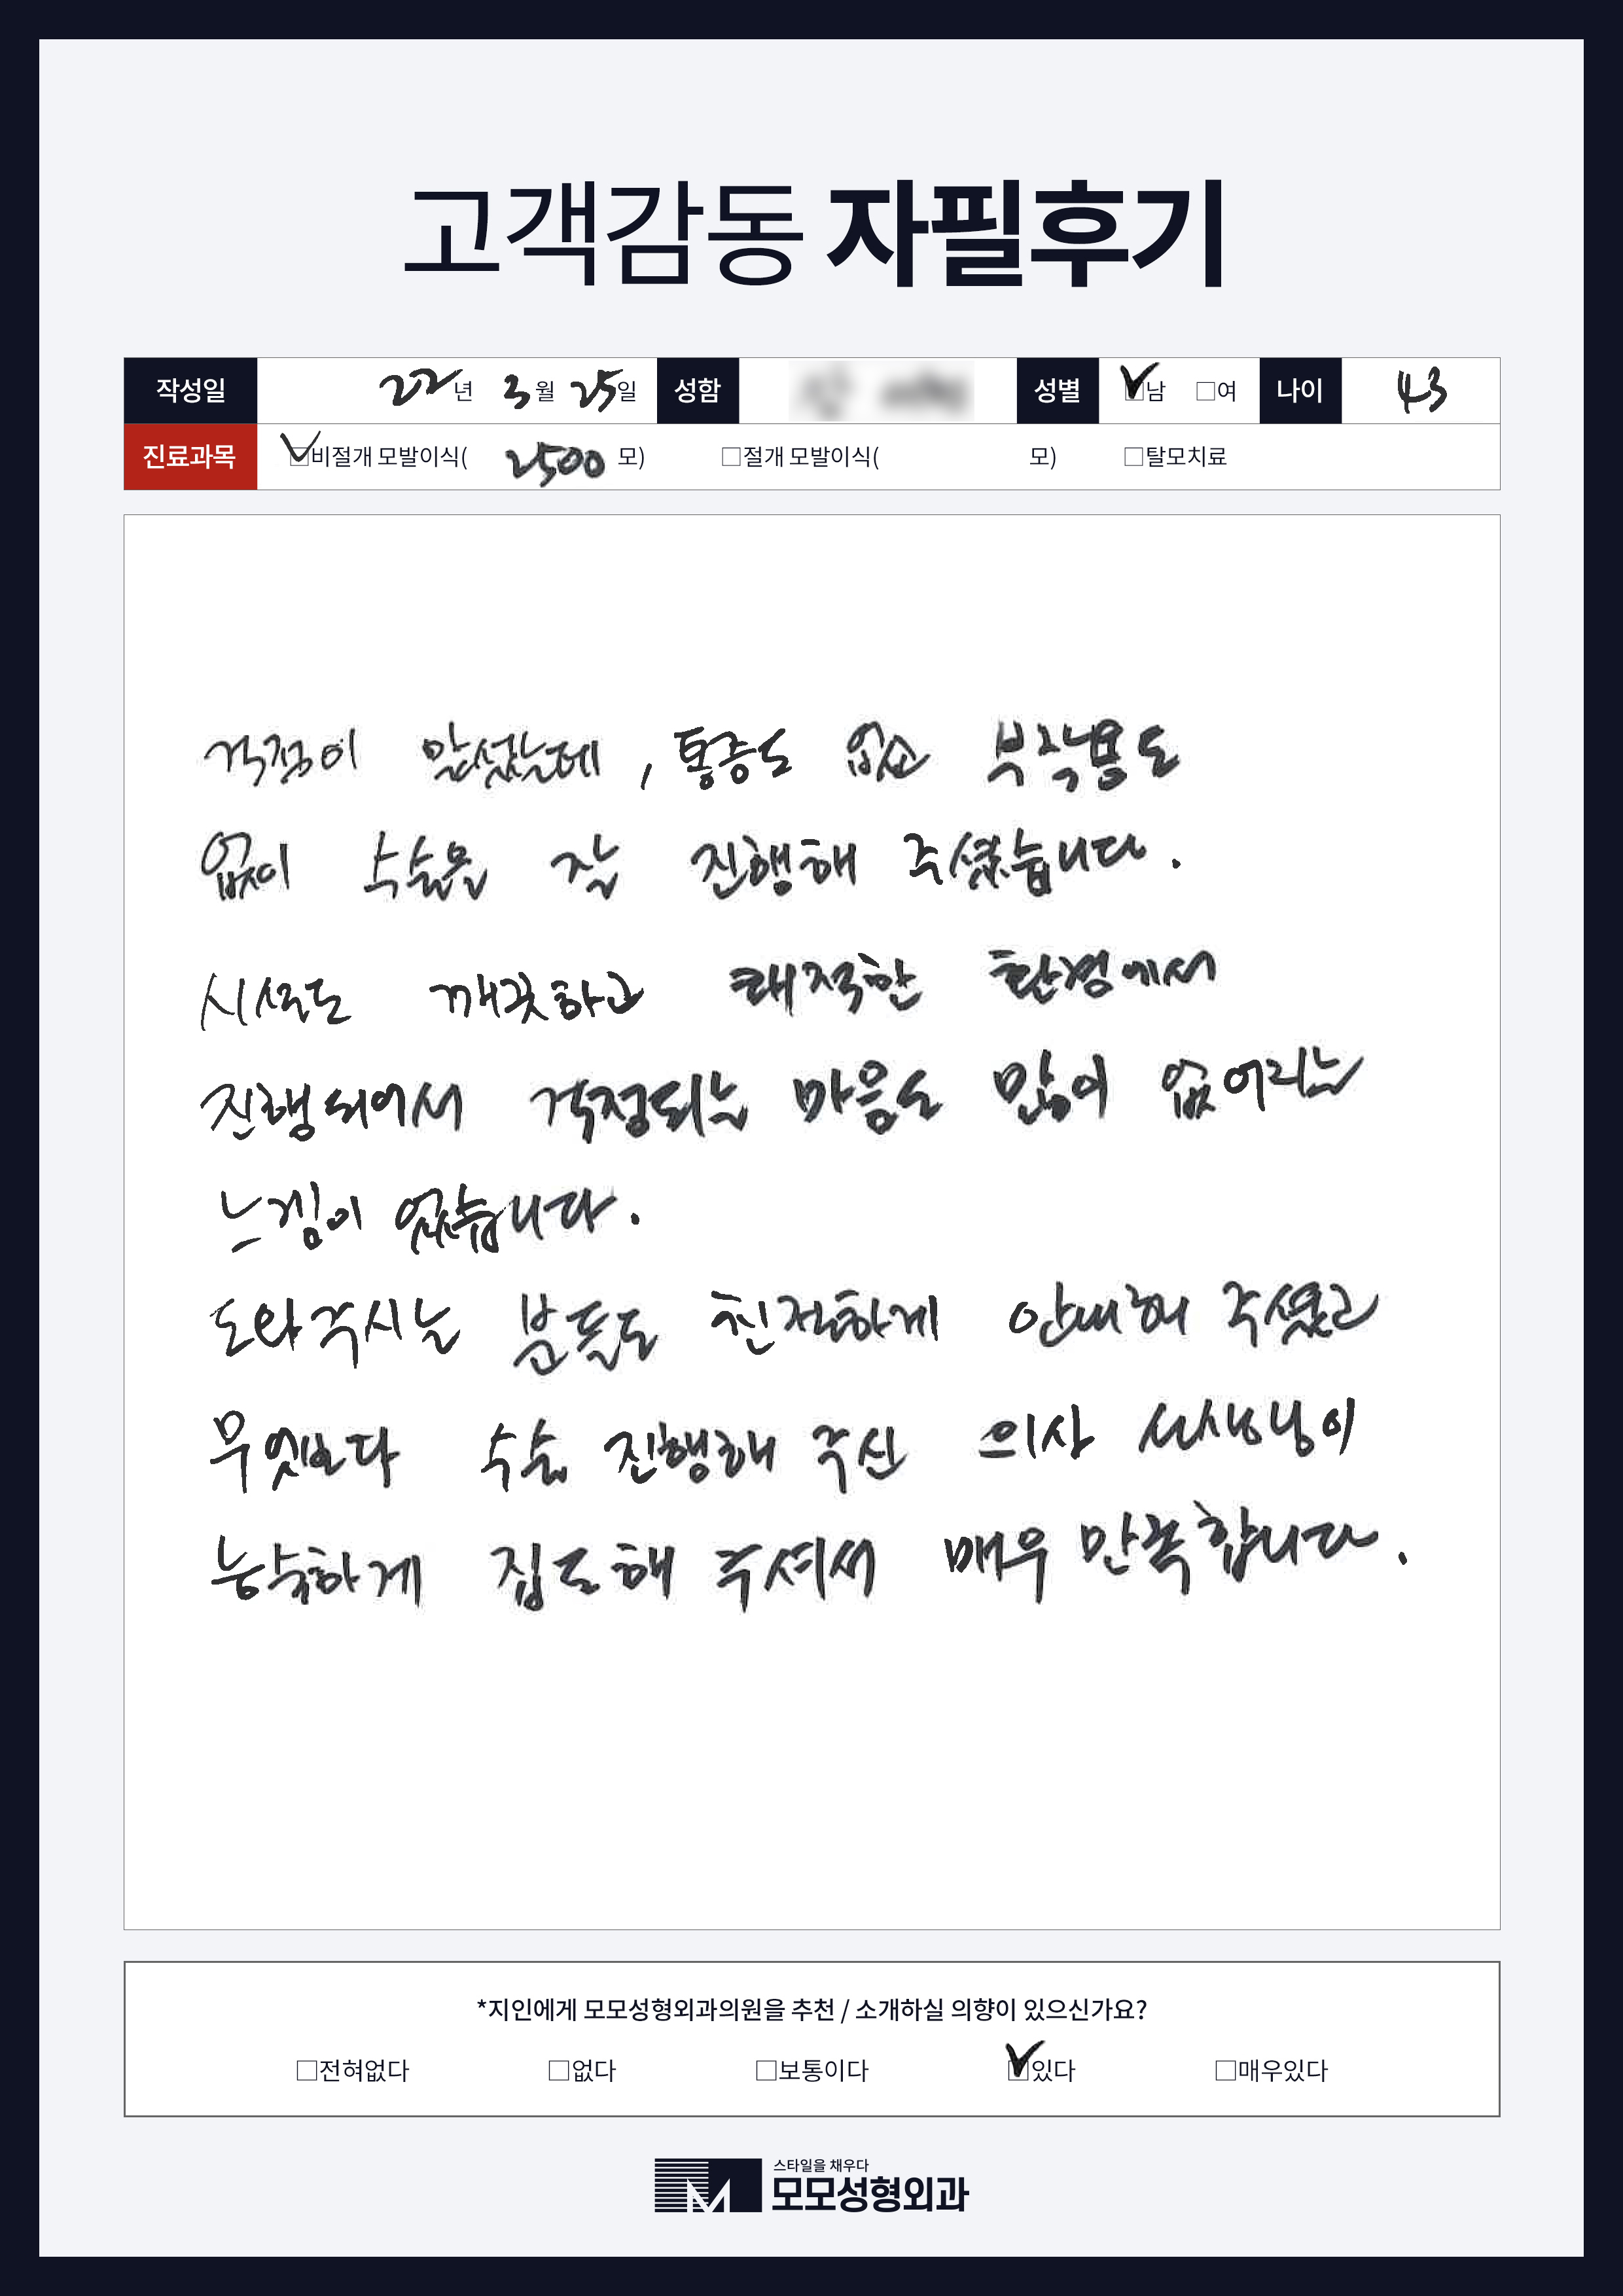 고객감동 자필후기
작성일 22년 3월 25일 성함 성별 ☑남 □여 나이 43
진료과목 ☑비절개 모발이식( 2500 모) □절개 모발이식( 모) □탈모치료
걱정이 앞섰는데, 통증도 없고 부작용도
없이 수술을 잘 진행해 주셨습니다.
시설도 깨끗하고 쾌적한 환경에서
진행되어서 걱정되는 마음도 많이 없어지는
느낌이 었습니다.
도와주시는 분들도 친절하게 안내해 주셨고
무엇보다 수술 진행해 주신 의사 선생님이
능숙하게 집도해 주셔서 매우 만족합니다.
*지인에게 모모성형외과의원을 추천 / 소개하실 의향이 있으신가요?
□전혀없다 □없다 □보통이다 ☑있다 □매우있다
스타일을 채우다
모모성형외과